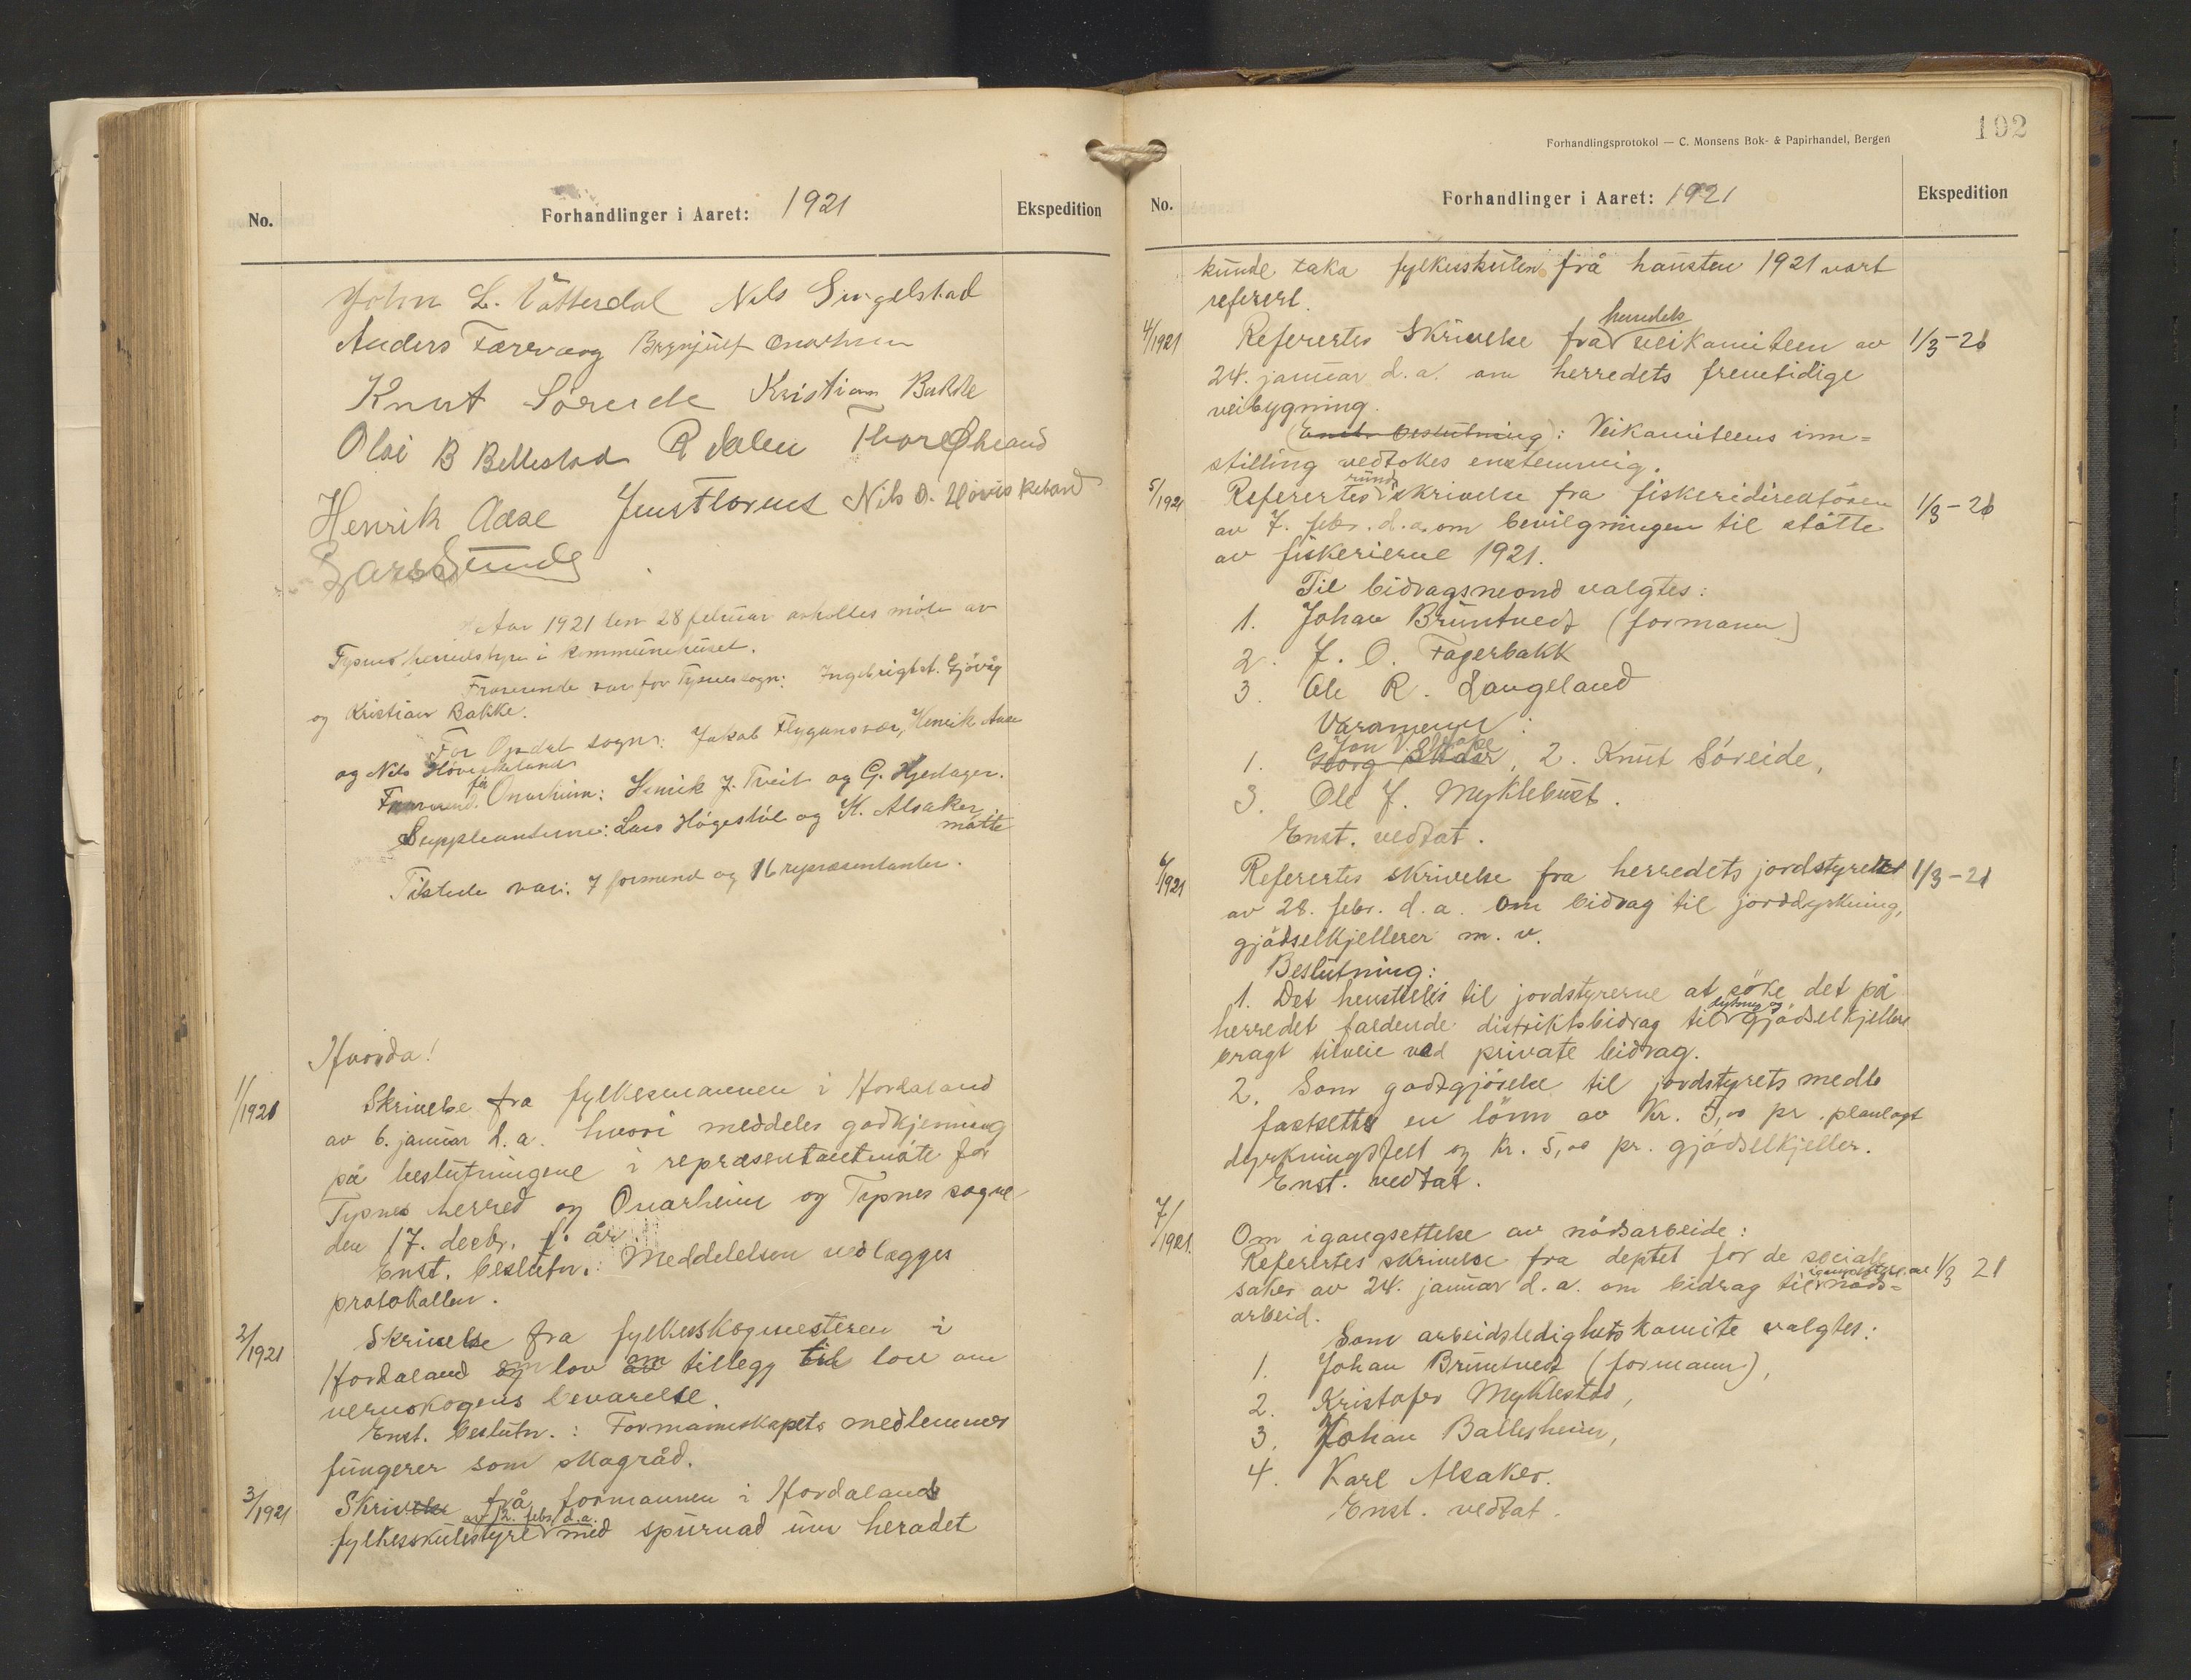 No.
Forhandlinger i Aaret: 1921
Ekspedition
John L. Vattesdal Nils Singelstad
Anders Færevaag Brynjulf Onarheim
Knut Søreide Kristian Bakke
Olai B Bellestad R Dalen Thore
Henrik Aase Jens Flornes Nils O. Høviskeland
Lars Sunde
Aar 1921 den 28 februar avholdtes møte av
Tysnes herredstyre i kommunehuset.
Fraværende var for Tysnes sogn: Ingebrigt st. Gjøvåg
og Kristian Bakke.
For Opdal sogn: Jakob Flygansvær, Henrik Aase
og Nils Høviskeland
for Onarheim: Henrik J. Tveit og G. Hjertager.
Suppleanterne: Lars Høgestøl og K. Alsaker
møtte
Tilstede var: 7 formend og 16 representanter.
Hvorda!
1/1921
Skrivelse fra fylkesmannen i Hordaland
av 6. januar d.a. hvori meddeles godkjenning
på beslutningene i representantmøte for
Tysnes herred og Onarheim og Tysnes sogne
den 17. decbr. f. år.
Enst. beslutn.: Meddelelsen vedlægges
protokollen.
2/1921
Skrivelse fra fylkesskogmesteren i
Hordaland om lov om tillegg til lov om
vernskogens bevarelse.
Enst. beslutn.: Formannskapets medlemmer
fungerer som skogråd.
3/1921
Skriv frå formannen i Hordaland
av 12. febr. d.a.
fylkesskulestyre med spurnad um heradet
192
Forhandlingsprotokol — C. Monsens Bok- & Papirhandel, Bergen
No.
Forhandlinger i Aaret: 1921
Ekspedition
kunde taka fylkesskulen frå hausten 1921 vart
referert.
herredets
4/1921 Referertes skrivelse fra veikomiteen av 1/3-21
24. januar d.a. om herredets fremtidige
veibygning.
(Enst. beslutning): Veikomiteens inn=
stilling vedtokes enstemmig.
rund
5/1921 Referertes skrivelse fra fiskeridirektøren 1/3-21
av 7. febr. d.a. om bevilgningen til støtte
av fiskerierne 1921.
Til bidragsnemnd valgtes:
1. Johan Bruntveit (formann)
2. J. O. Fagerbakk
3 Ole R. Haugeland
Varamenn:
Jon V.
1. Georg Skaar, 2. Knut Søreide,
3. Ole J. Myklebust.
Enst. vedtat.
6/1921 Referertes skrivelse fra herredets jordstyre 1/3-21
av 28. febr. d.a. om bidrag til jorddyrkning,
gjødselkjellerer m. v.
Beslutning:
1. Det henstilles til jordstyrerne at søke det på
dyrkning og
herredet faldende distriktsbidrag til gjødselkjellere
bragt tilveie ved private bidrag.
2. Som godtgjørelse til jordstyrets medl.
fastsettes en lønn av Kr. 5,00 pr. planlagt
dyrkningsfelt og kr. 5,00 pr. gjødselkjeller.
Enst. vedtat.
7/1921. Om igangsettelse av nødsarbeide:
Referertes skrivelse fra deptet for de sociale
igangsettelse av 1/3 21
saker av 24. januar d.a. om bidrag til nøds=
arbeid.
Som arbeidsledighetskomite valgtes:
1. Johan Bruntveit (formann),
2. Kristofer Myklestad,
3. Johan Ballesheim,
4. Karl Alsaker.
Enst. vedtat.